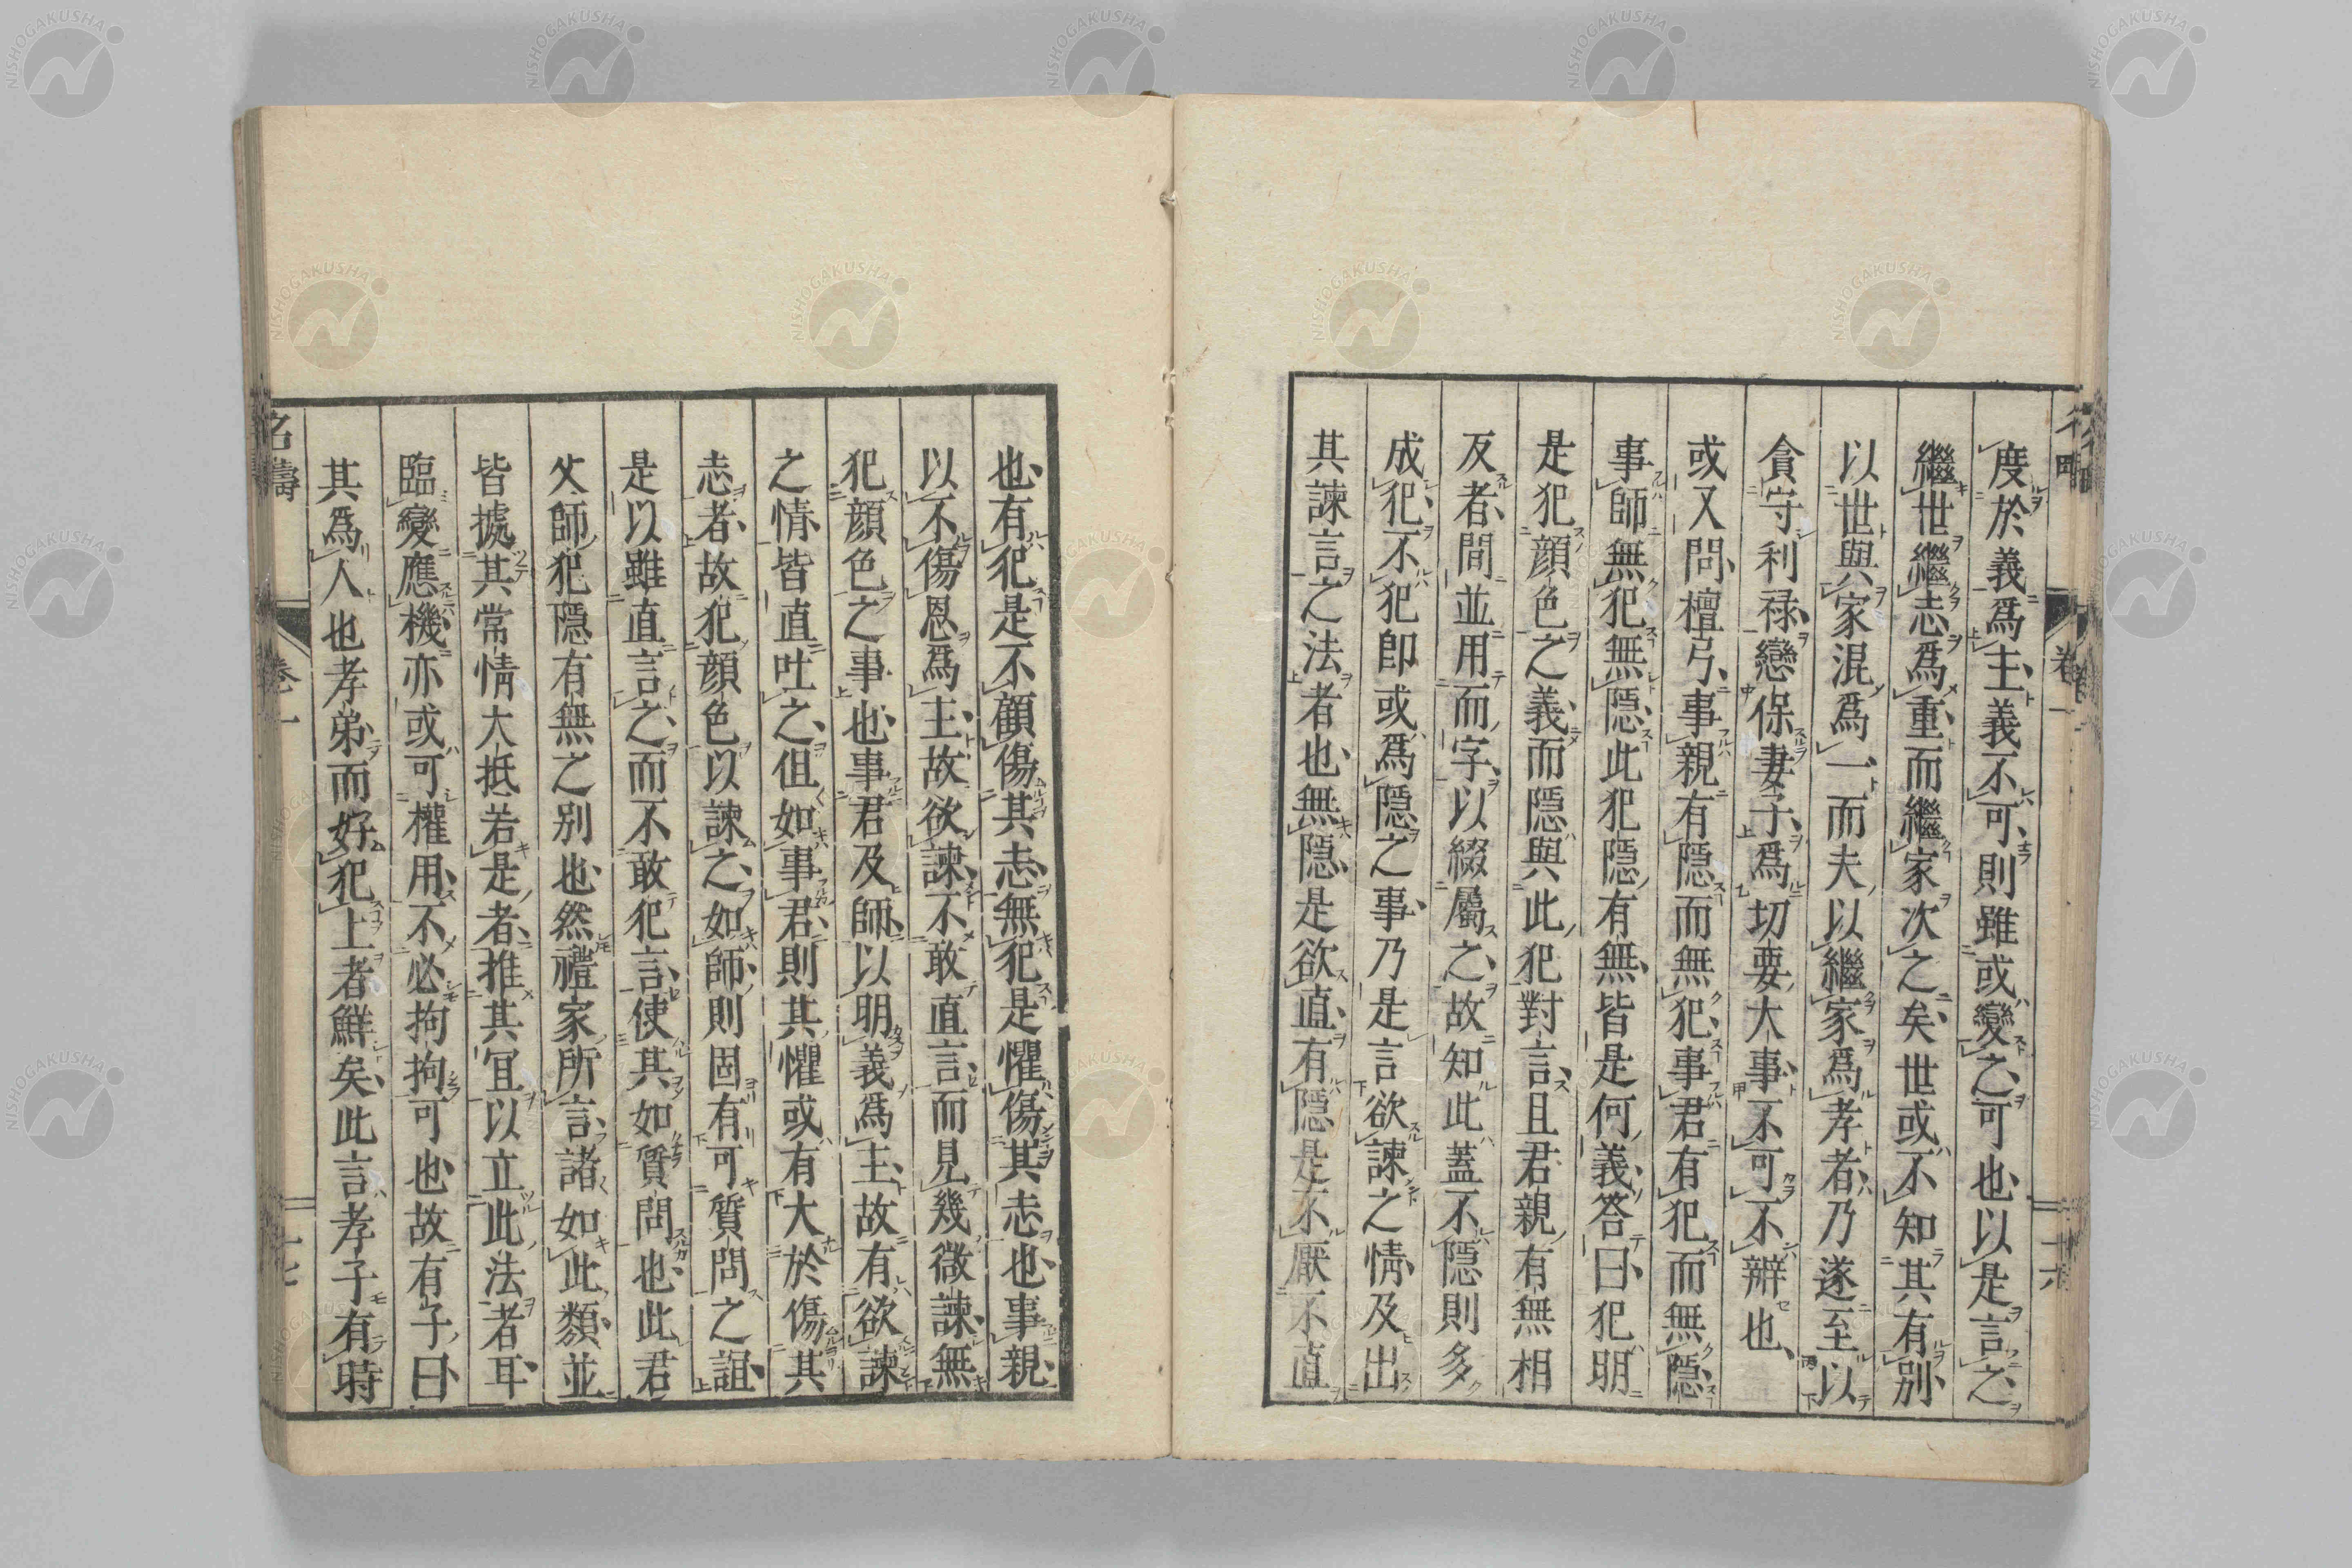 度於義爲主義不可則雖或變之可也以是言之
繼世繼志爲重而繼家次之矣世或不知其有別
以世與家混爲一而夫以繼家爲孝者乃遂至以
貪守利祿戀保妻子爲切要大事不可不辨也
或又問檀弓事親有隱而無犯事君有犯而無隱
事師無犯無隱此犯隱有無皆是何義答曰犯明
是犯顔色之義而隱與此犯對言且君親有無相
反者間並用而字以綴屬之故知此蓋不隱則多
成犯不犯即或爲隱之事乃是言欲諫之情及出
其諫言之法者也無隱是欲直有隱是不厭不直
也有犯是不顧傷其志無犯是懼傷其志也事親
以不傷恩爲主故欲諫不敢直言而見幾微諫無
犯顔色之事也事君及師以明義爲主故有欲諫
之情皆直吐之但如事君則其懼或有大於傷其
志者故犯顔色以諫之如師則固有可質問之誼
是以雖直言之而不敢犯言使其如質問也此君
父師犯隱有無之別也然禮家所言諸如此類並
皆據其常情大抵若是者推其冝以立此法者耳
臨變應機亦或可權用不必拘拘可也故有子曰
其爲人也孝弟而好犯上者鮮矣此言孝子有時
名疇
卷一
十七
卷一
十六
NISHOGAKUSHA